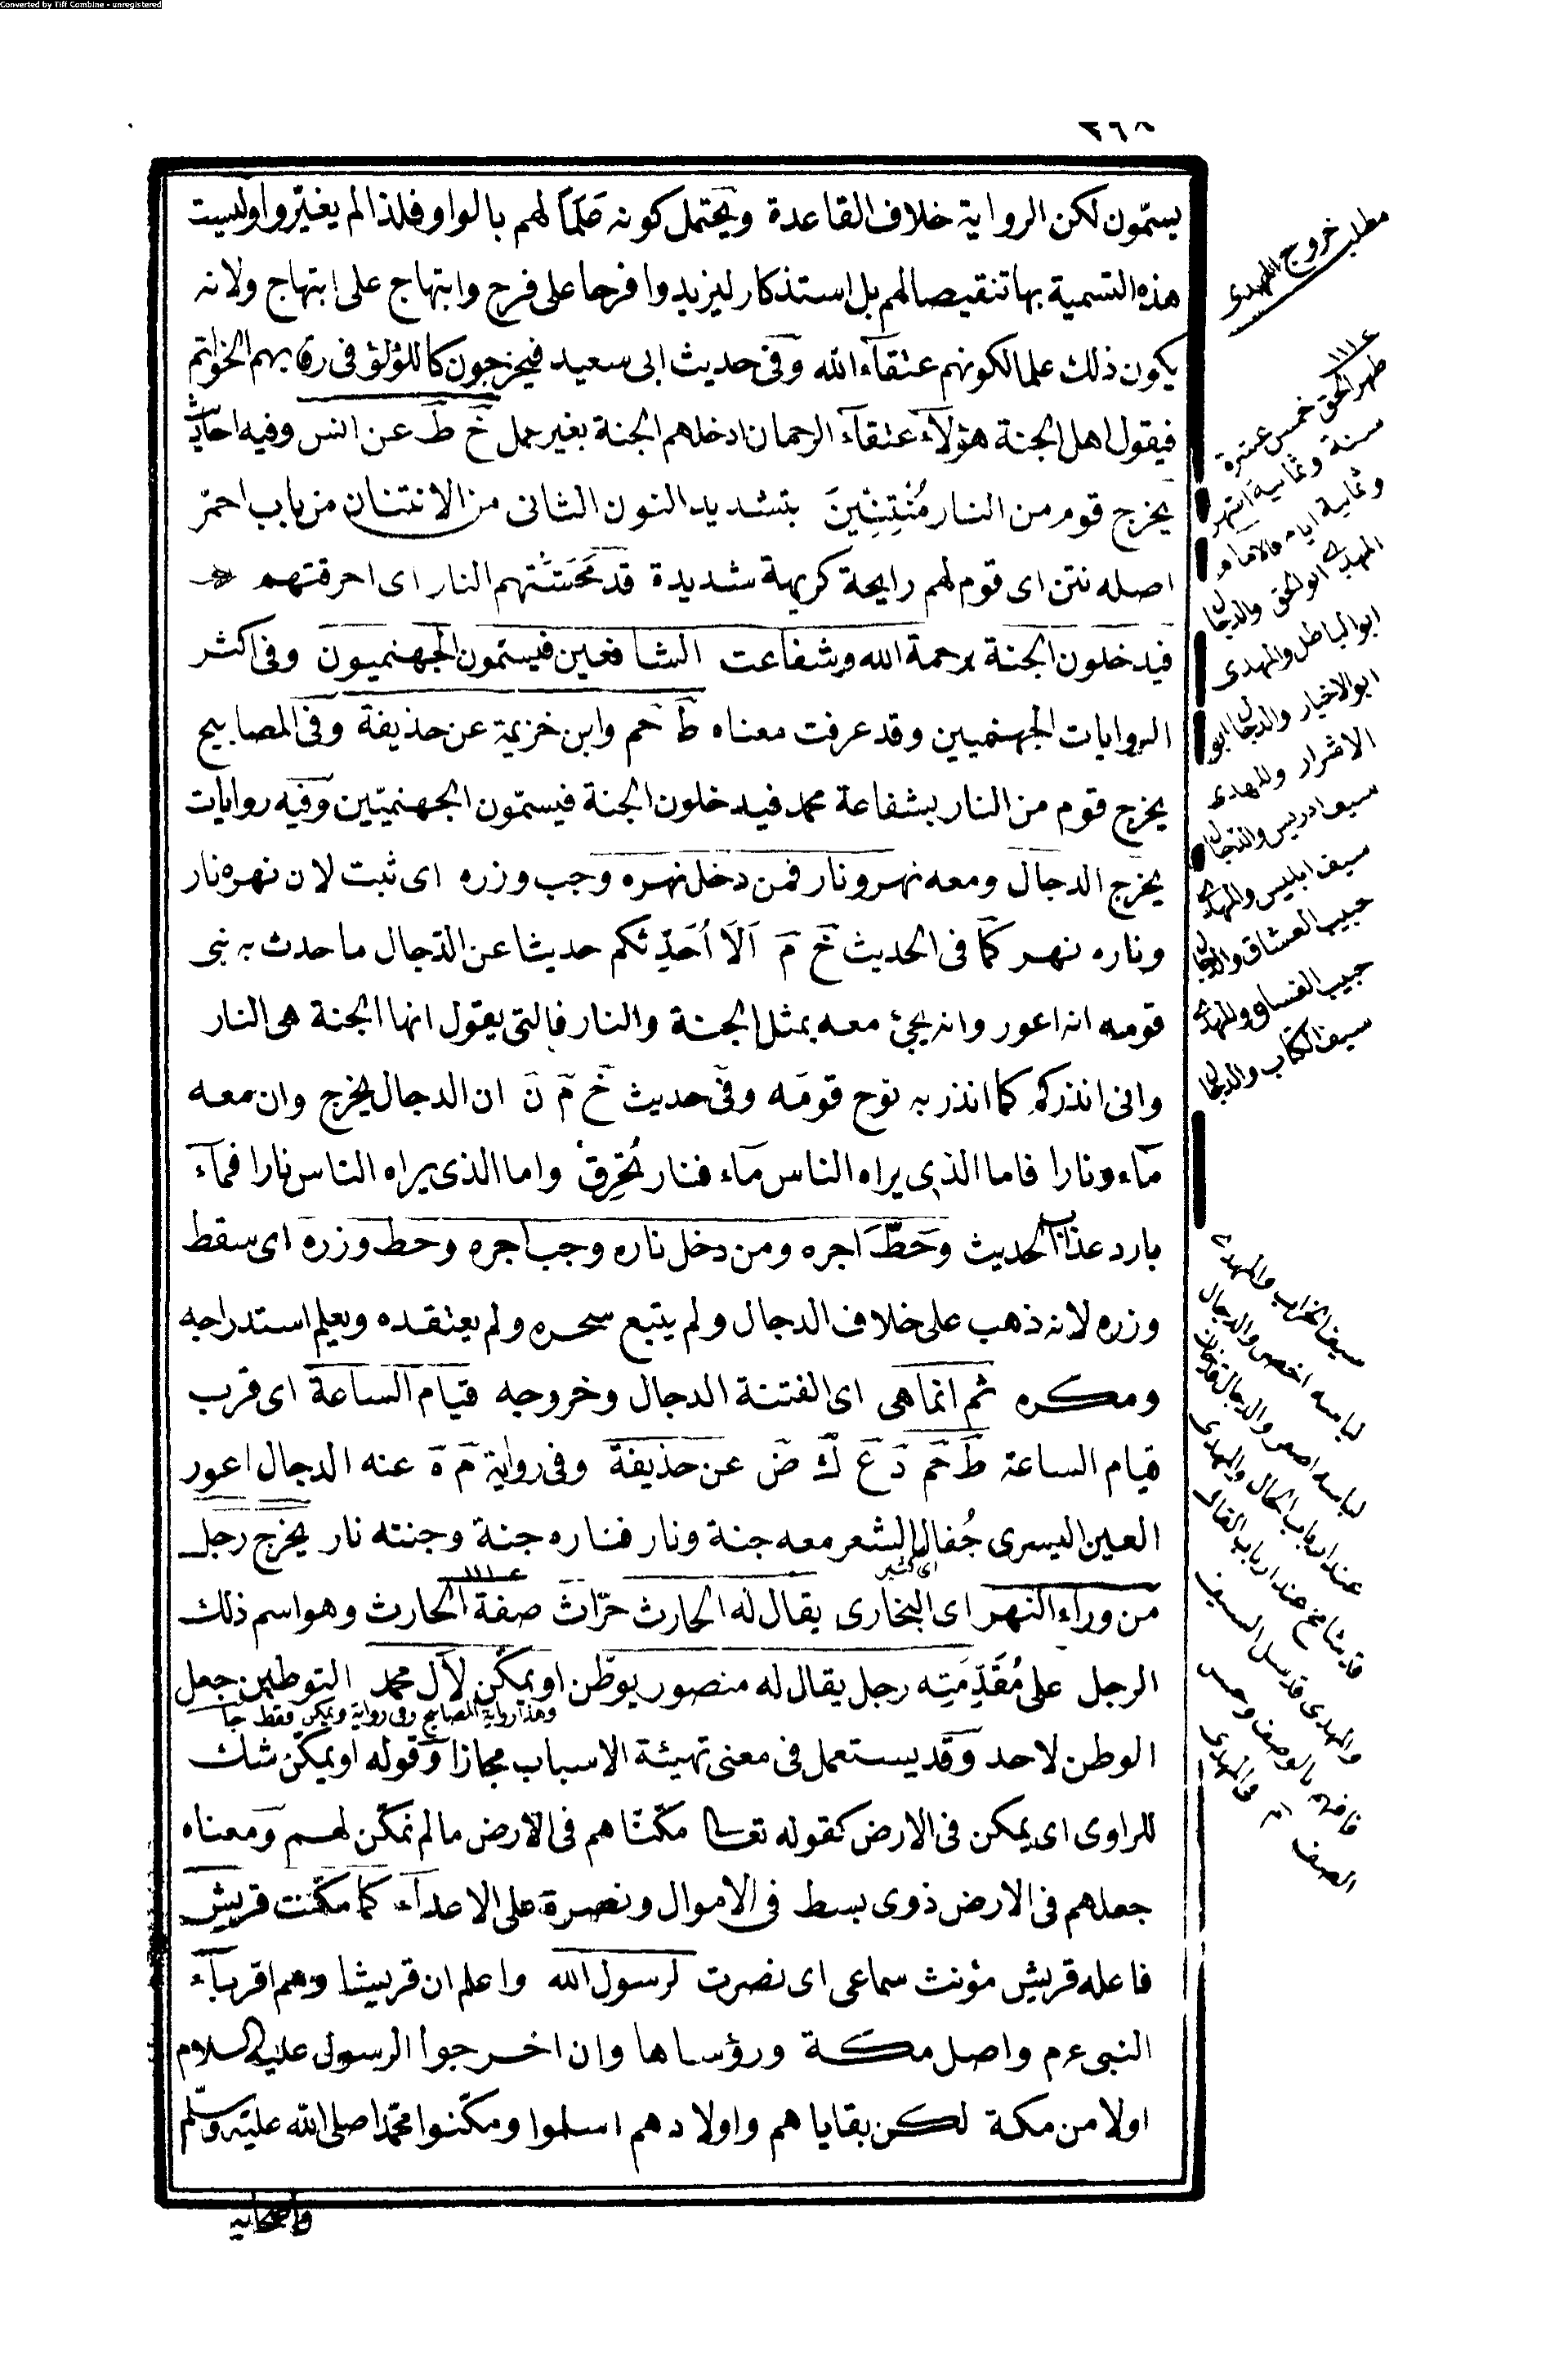 Converted by Tiff Combine - unregistered
٣٦٨
يسمّون لكن الرواية خلاف القاعدة ويحتمل كونه عَلَماً لهم بالواو فلذا لم يغيّر واو ليست
هذه التسمية بها تنقيصا لهم بل استذكار ليزيدوا فرحا على فرح وابتهاج على ابتهاج ولانه
يكون ذلك علما لكونهم عتقآء الله وفى حديث ابى سعيد فيخرجون كاللؤلؤ فى رقابهم الخواتم
فيقول اهل الجنة هؤلآء عتقآء الرحمان ادخلهم الجنة بغير عمل خ ط عن انس وفيه احاديث
يخرج قوم من النار مُنْتِنِّينَ بتشديد النون الثانى من الانتنان من باب احمرّ
اصله نتن اى قوم لهم رايحة كريهة شديدة قد مَحَشَتْهم النار اى احرقتهم
فيدخلون الجنة برحمة الله وشفاعت الشافعين فيسمّون الجهنميون وفى اكثر
الروايات الجهنميين وقد عرفت معناه ط حم وابن خزيمة عن حذيفة وفى المصابيح
يخرج قوم من النار بشفاعة محمد فيدخلون الجنة فيسمّون الجهنميّين وفيه روايات
يخرج الدجال ومعه نهر ونار فمن دخل نهره وجب وزره اى ثبت لان نهره نار
وناره نهر كما فى الحديث خ م اَلَا اُحَدِّثكم حديثا عن الدّجال ما حدث به نبى
قومه انه اعور وانه يجئ معه بمثل الجنة والنار فالتى يقول انها الجنة هى النار
وانى انذركم كما انذر به نوح قومه وفى حديث خ م ن ان الدجال يخرج وان معه
مآء ونارا فاما الذى يراه الناس مآء فنار تُحْرِق واما الذى يراه الناس نارا فمآء
بارد عذاب الحديث وَحَطَّ اجره ومن دخل ناره وجب اجره وحط وزره اى سقط
وزره لانه ذهب على خلاف الدجال ولم يتبع سحره ولم يعتقده ويعلم استدراجه
ومكره ثم انما هى اى الفتنة الدجال وخروجه قيام الساعة اى قرب
قيام الساعة ط حم د ع ك ض عن حذيفة وفى رواية م ه عنه الدجال اعور
العين اليسرى جُفال الشعر معه جنة ونار فناره جنة وجنته نار يخرج رجل
اى كثير
من ورآء النهر اى البخارى يقال له الحارث حرّاث صفة الحارث وهو اسم ذلك
الرجل على مُقَدِّمَتِه رجل يقال له منصور يوطّن او يمكّن لآل محمد التوطين جعل
وهذا رواية المصابيح وفى رواية ويمكن فقط
الوطن لاحد وقد يستعمل فى معنى تهيئة الاسباب مجازا وقوله او يمكّن شك
للراوى اى يمكن فى الارض كقوله تعالى مكّنّا هم فى الارض ما لم نمكّن لهم ومعناه
جعلهم فى الارض ذوى بسط فى الاموال ونصرة على الاعدآء كما مكّنت قريش
فاعله قريش مؤنث سماعى اى نصرت لرسول الله واعلم ان قريشا وهم اقربآء
النبى عم واصل مكة ورؤساها وان اخرجوا الرسول عليه السلام
اولا من مكة لكن بقاياهم واولادهم اسلموا ومكّنوا محمّدا صلى الله عليه وسلّم
واصحابه
مطلب خروج المهدى
١١١٤
ظهر الحق خمس عشرة
سنة وثمانية اشهر
وثمانية ايام
المهدى ابو الحق والدجال
ابو الباطل والمهدى
ابو الاخيار والدجال ابو
الاشرار والمهدى
سيف ادريس والدجال
سيف ابليس والمهدى
حبيب العشاق والدجال
حبيب الفساق والمهدى
سيف الكتاب والدجال
سيف الخراب والمهدى
لباسه اخضر والدجال
لباسه اصفر والدجال
عند ارباب الحال والمهدى
عند ارباب القال